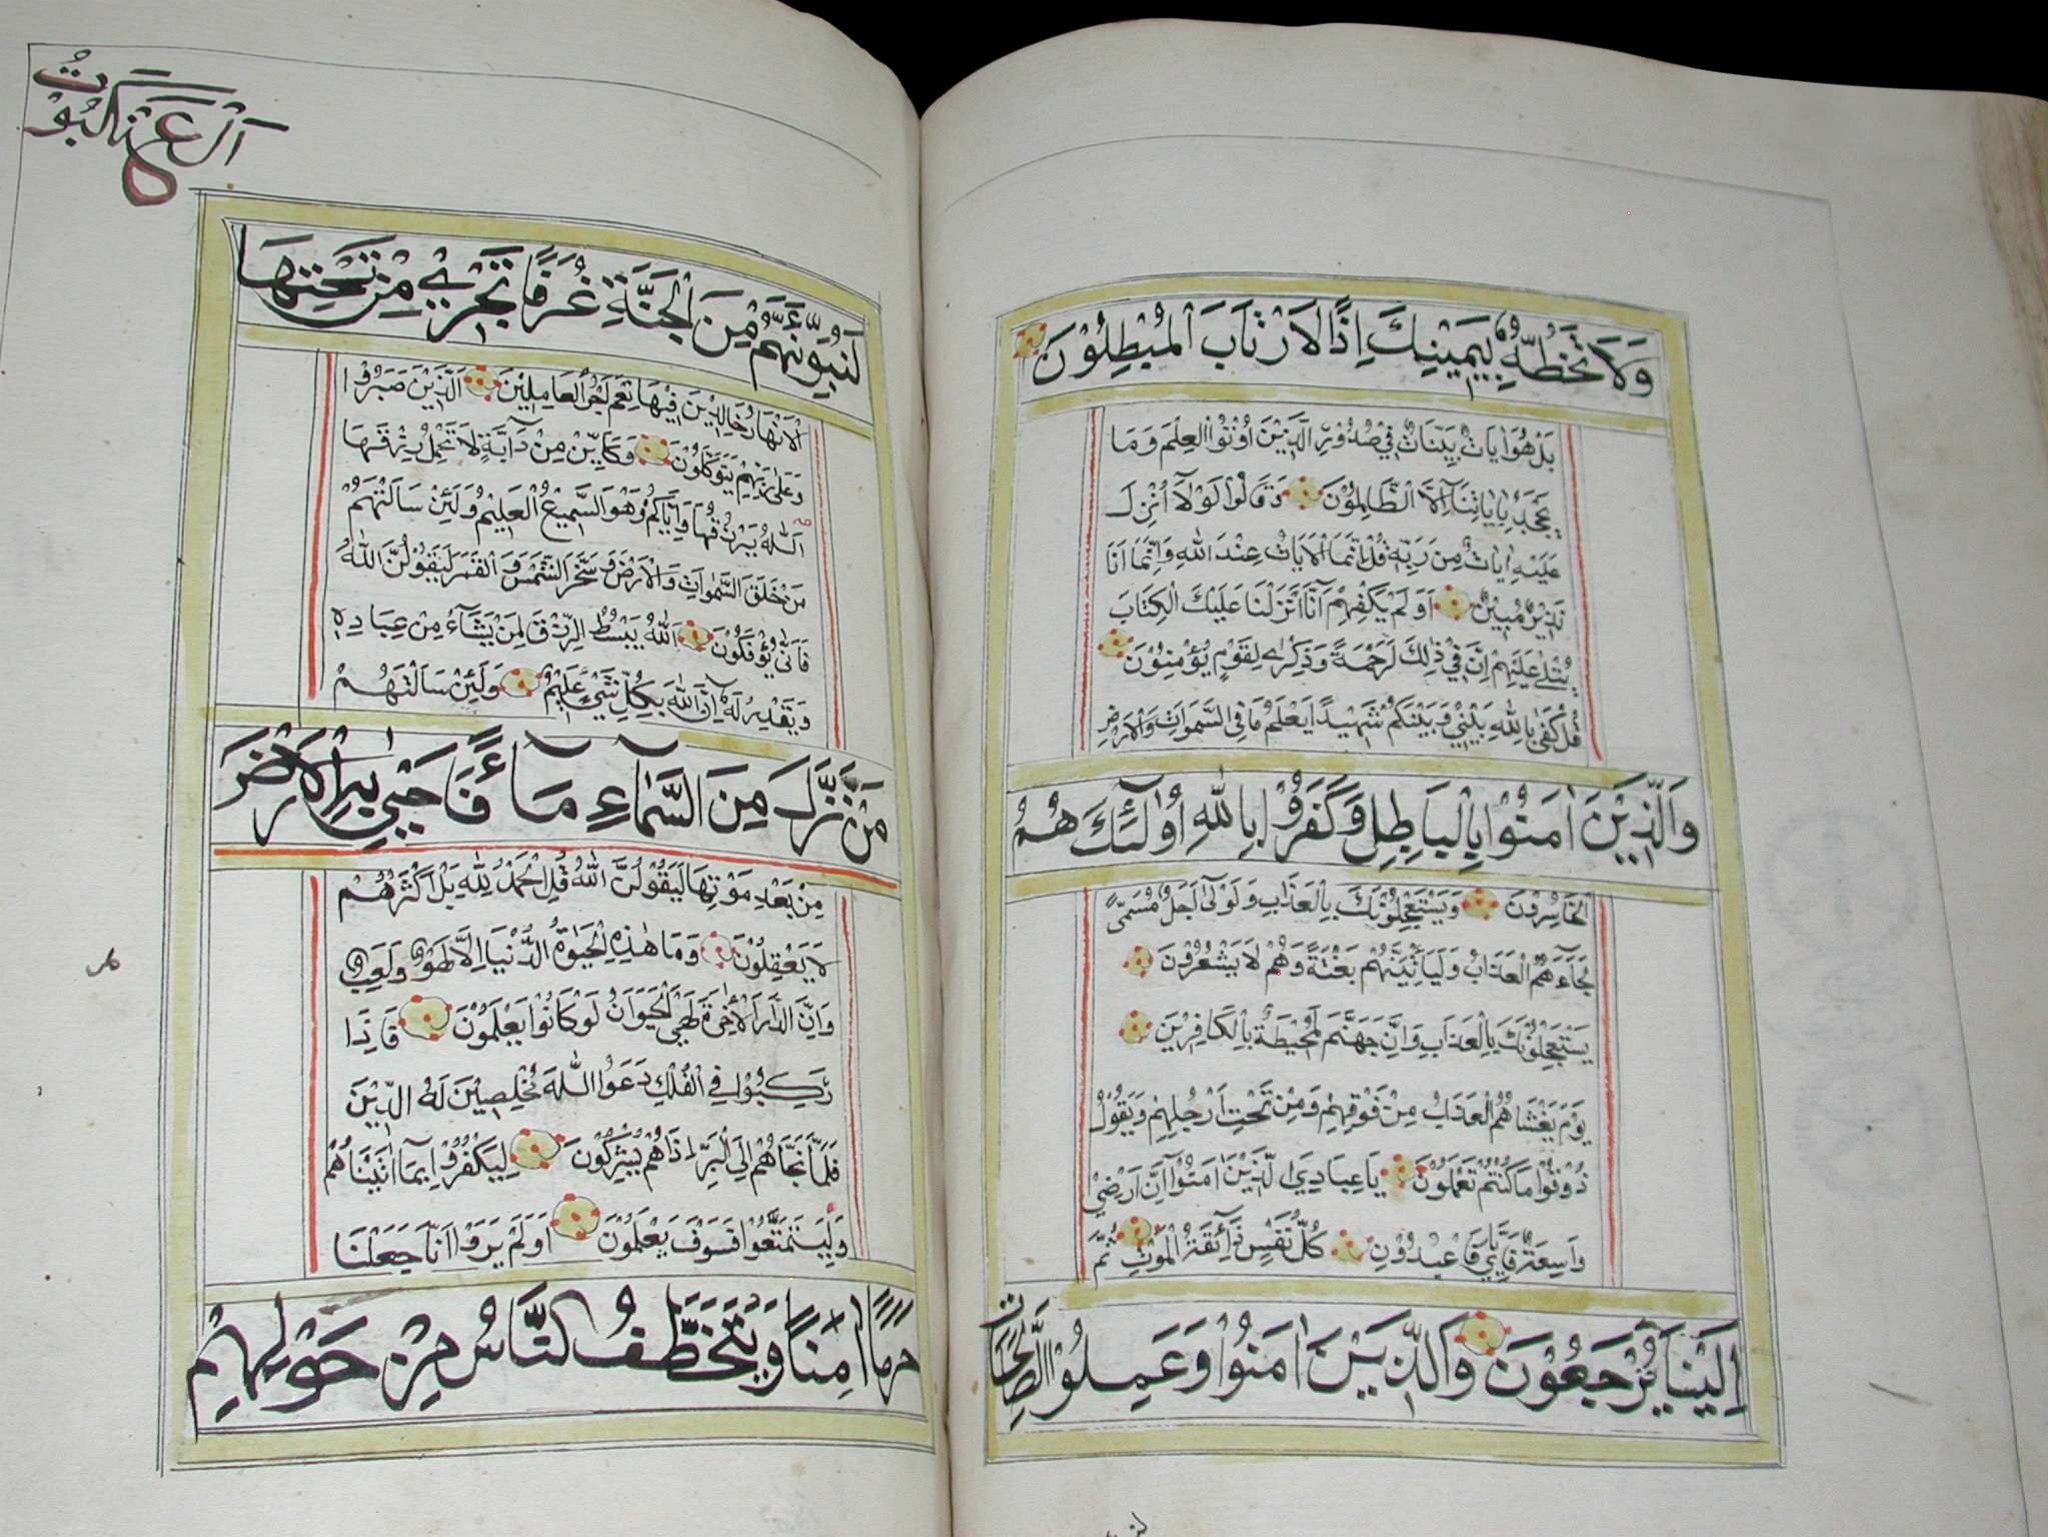 وَلَا تَخُطُّهُ بِيَمِينِكَ اِذًا لَارْتَابَ الْمُبْطِلُوْنَ
بَلْ هُوَ اٰيَاتٌ بَيِّنَاتٌ فِيْ صُدُوْرِ الَّذِيْنَ اُوْتُوا الْعِلْمَ وَمَا
يَجْحَدُ بِاٰيَاتِنَا اِلَّا الظَّالِمُوْنَ وَقَالُوْا لَوْلَآ اُنْزِلَ
عَلَيْهِ اٰيَاتٌ مِنْ رَبِّهٖ قُلْ اِنَّمَا الْاٰيَاتُ عِنْدَ اللّٰهِ وَاِنَّمَا اَنَا
نَذِيْرٌ مُبِيْنٌ اَوَلَمْ يَكْفِهِمْ اَنَّا اَنْزَلْنَا عَلَيْكَ الْكِتَابَ
يُتْلٰى عَلَيْهِمْ اِنَّ فِيْ ذٰلِكَ لَرَحْمَةً وَذِكْرٰى لِقَوْمٍ يُؤْمِنُوْنَ
قُلْ كَفٰى بِاللّٰهِ بَيْنِيْ وَبَيْنَكُمْ شَهِيْدًا يَعْلَمُ مَا فِي السَّمٰوَاتِ وَالْاَرْضِ
وَالَّذِيْنَ اٰمَنُوْا بِالْبَاطِلِ وَكَفَرُوْا بِاللّٰهِ اُولٰٓئِكَ هُمُ
الْخَاسِرُوْنَ وَيَسْتَعْجِلُوْنَكَ بِالْعَذَابِ وَلَوْلَآ اَجَلٌ مُسَمًّى
لَجَآءَهُمُ الْعَذَابُ وَلَيَأْتِيَنَّهُمْ بَغْتَةً وَهُمْ لَا يَشْعُرُوْنَ
يَسْتَعْجِلُوْنَكَ بِالْعَذَابِ وَاِنَّ جَهَنَّمَ لَمُحِيْطَةٌ بِالْكَافِرِيْنَ
يَوْمَ يَغْشَاهُمُ الْعَذَابُ مِنْ فَوْقِهِمْ وَمِنْ تَحْتِ اَرْجُلِهِمْ وَيَقُوْلُ
ذُوْقُوْا مَا كُنْتُمْ تَعْمَلُوْنَ يَا عِبَادِيَ الَّذِيْنَ اٰمَنُوْٓا اِنَّ اَرْضِيْ
وَاسِعَةٌ فَاِيَّايَ فَاعْبُدُوْنِ كُلُّ نَفْسٍ ذَآئِقَةُ الْمَوْتِ ثُمَّ
اِلَيْنَا تُرْجَعُوْنَ وَالَّذِيْنَ اٰمَنُوْا وَعَمِلُوا الصَّالِحَاتِ
اَلْعَنْكَبُوْتُ
لَنُبَوِّئَنَّهُمْ مِنَ الْجَنَّةِ غُرَفًا تَجْرِيْ مِنْ تَحْتِهَا
الْاَنْهَارُ خَالِدِيْنَ فِيْهَا نِعْمَ اَجْرُ الْعَامِلِيْنَ اَلَّذِيْنَ صَبَرُوْا
وَعَلٰى رَبِّهِمْ يَتَوَكَّلُوْنَ وَكَاَيِّنْ مِنْ دَآبَّةٍ لَا تَحْمِلُ رِزْقَهَا
اَللّٰهُ يَرْزُقُهَا وَاِيَّاكُمْ وَهُوَ السَّمِيْعُ الْعَلِيْمُ وَلَئِنْ سَاَلْتَهُمْ
مَنْ خَلَقَ السَّمٰوَاتِ وَالْاَرْضَ وَسَخَّرَ الشَّمْسَ وَالْقَمَرَ لَيَقُوْلُنَّ اللّٰهُ
فَاَنّٰى يُؤْفَكُوْنَ اَللّٰهُ يَبْسُطُ الرِّزْقَ لِمَنْ يَشَآءُ مِنْ عِبَادِهٖ
وَيَقْدِرُ لَهٗ اِنَّ اللّٰهَ بِكُلِّ شَيْءٍ عَلِيْمٌ وَلَئِنْ سَاَلْتَهُمْ
مَنْ نَزَّلَ مِنَ السَّمَآءِ مَآءً فَاَحْيٰى بِهِ الْاَرْضَ
مِنْ بَعْدِ مَوْتِهَا لَيَقُوْلُنَّ اللّٰهُ قُلِ الْحَمْدُ لِلّٰهِ بَلْ اَكْثَرُهُمْ
لَا يَعْقِلُوْنَ وَمَا هٰذِهِ الْحَيَاوةُ الدُّنْيَا اِلَّا لَهْوٌ وَلَعِبٌ
وَاِنَّ الدَّارَ الْاٰخِرَةَ لَهِيَ الْحَيَوَانُ لَوْ كَانُوْا يَعْلَمُوْنَ فَاِذَا
رَكِبُوْا فِي الْفُلْكِ دَعَوُا اللّٰهَ مُخْلِصِيْنَ لَهُ الدِّيْنَ
فَلَمَّا نَجَّاهُمْ اِلَى الْبَرِّ اِذَا هُمْ يُشْرِكُوْنَ لِيَكْفُرُوْا بِمَا اٰتَيْنَاهُمْ
وَلِيَتَمَتَّعُوْا فَسَوْفَ يَعْلَمُوْنَ اَوَلَمْ يَرَوْا اَنَّا جَعَلْنَا
حَرَمًا اٰمِنًا وَيُتَخَطَّفُ النَّاسُ مِنْ حَوْلِهِمْ